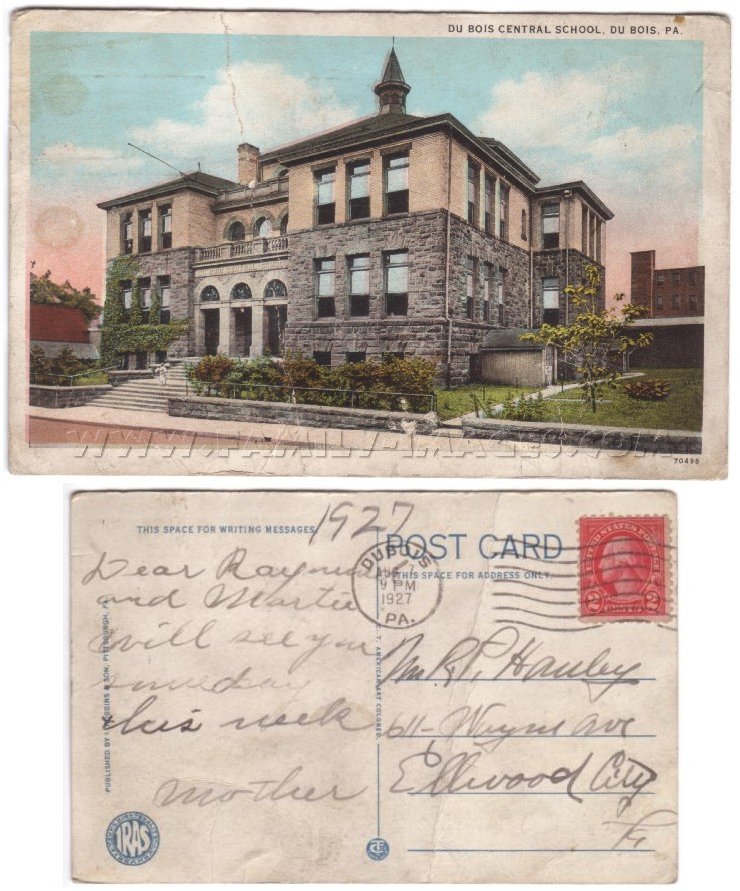 DU BOIS CENTRAL SCHOOL, DU BOIS, PA.
WWW.FAMILY-IMAGES.COM
70498
THIS SPACE FOR WRITING MESSAGES
1927
POST CARD
THIS SPACE FOR ADDRESS ONLY.
DUBOIS
9 PM
1927
PA.
UNITED STATES POSTAGE
2 CENTS 2
Dear Raymond
and Martie
will see you
someday
this week
Mother
Mr. R. P. Hanley
611- Wayne Ave
Ellwood City
Pa
& SON, PITTSBURGH, PA.
PUBLISHED BY I.
C. T. AMERICAN ART COLORED
IRAS